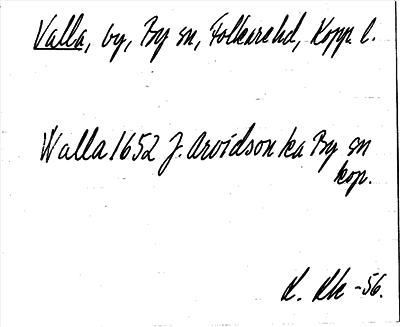 Valla, by, By sn, Folkare hd, Kopp. l.
Walla 1652 J. Arvidson ka By sn
kop.
-56.